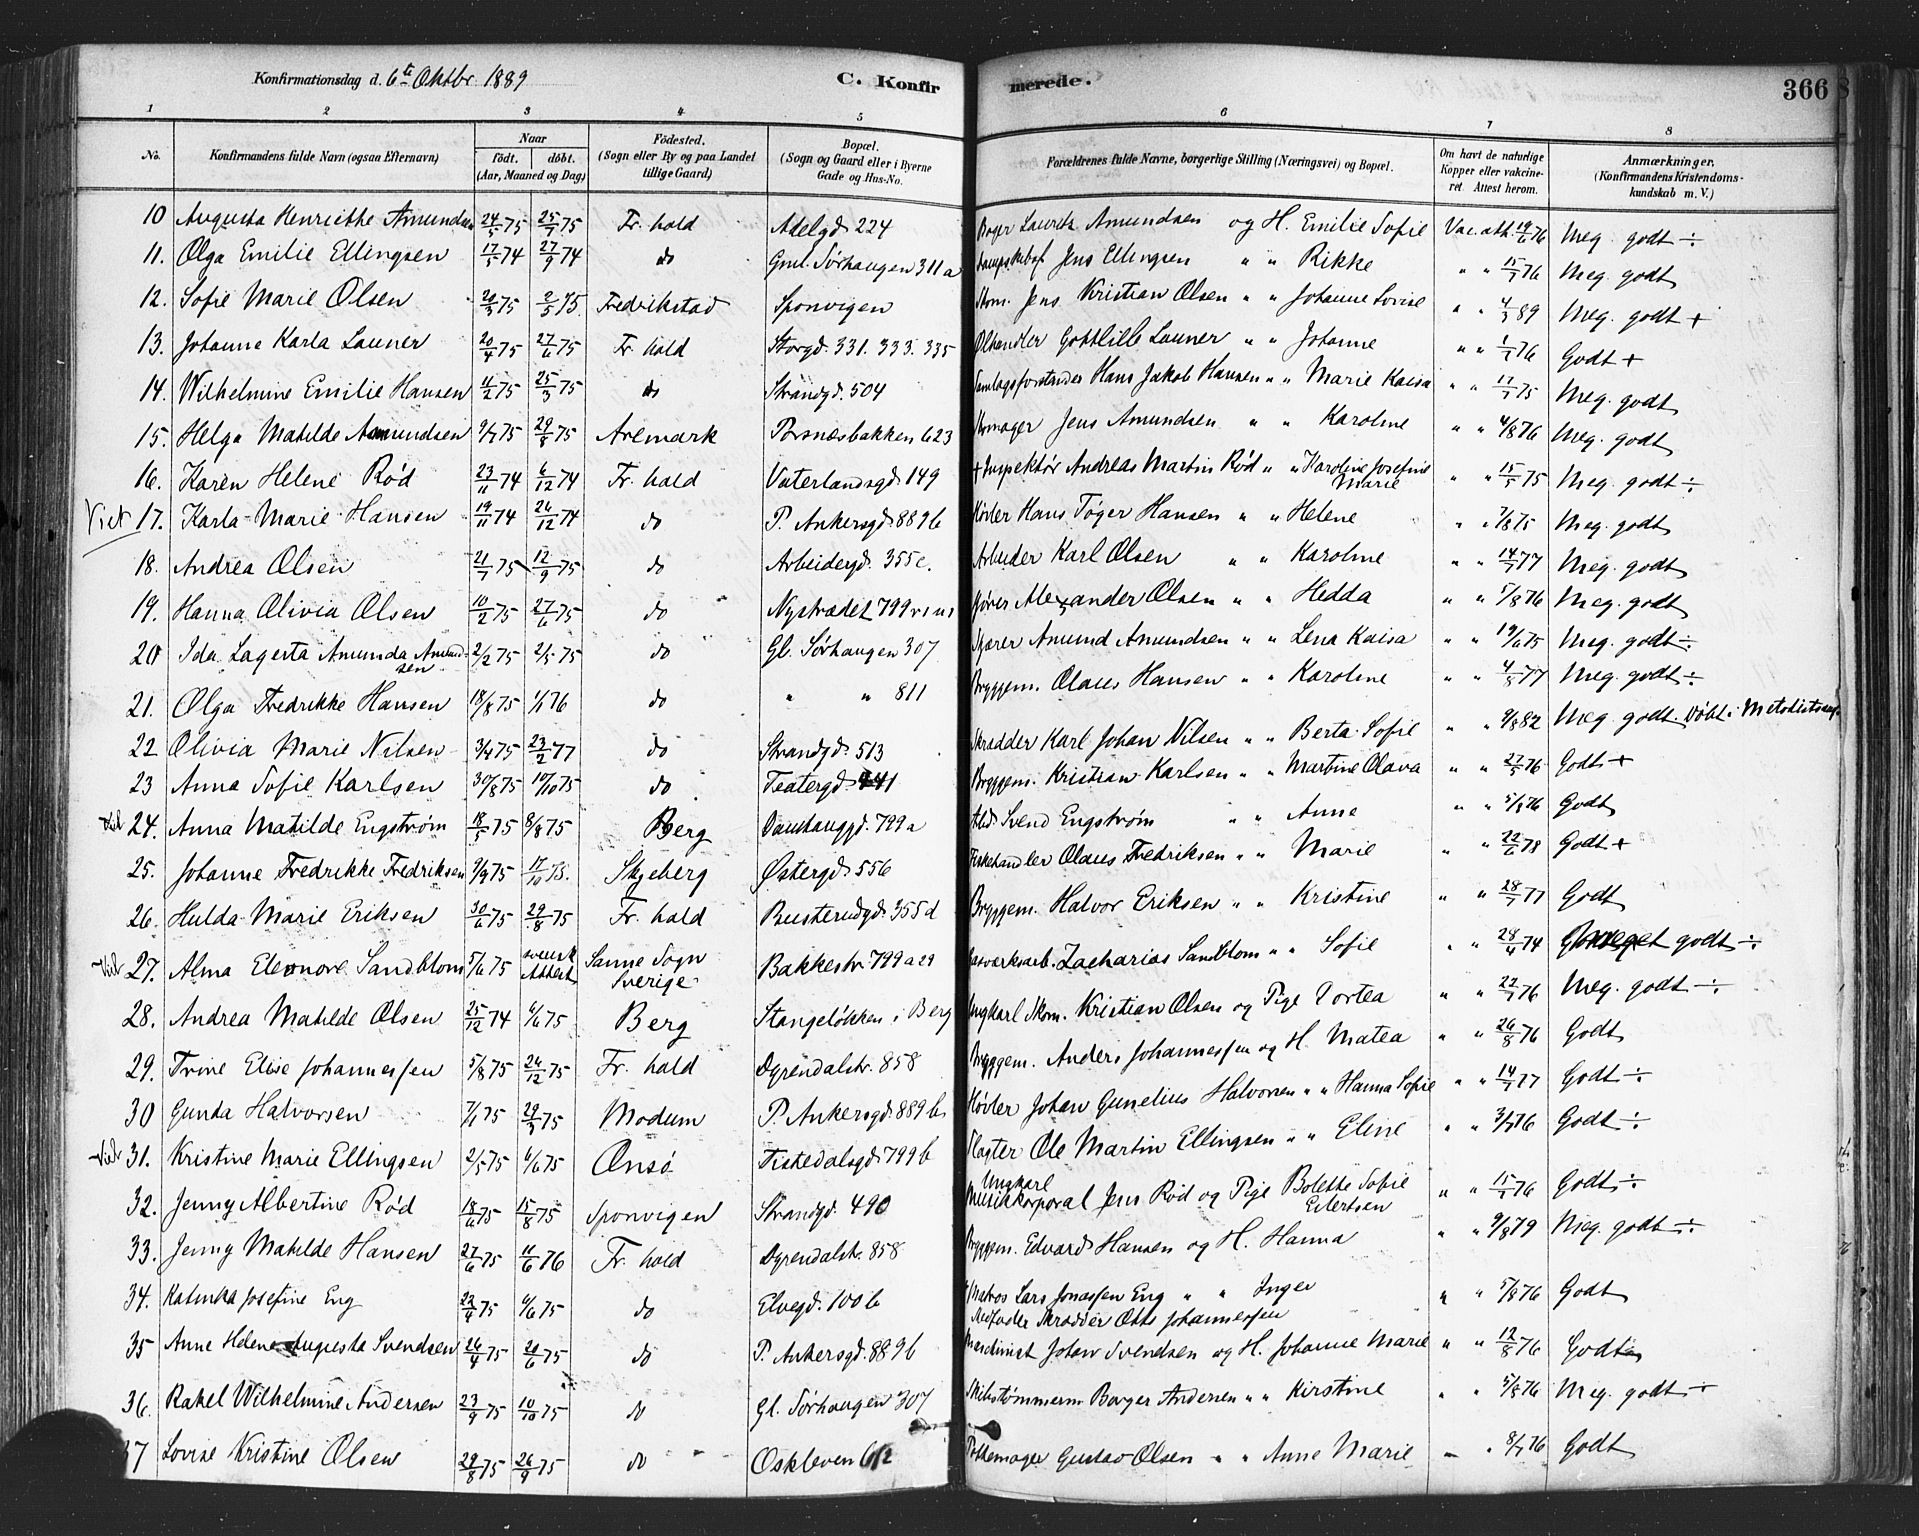 Konfirmationsdag d. 6te Oktbr. 1889 C. Konfirmerede. 366
1 2 3 4 5 6 7 8
No. Konfirmandens fulde Navn (ogsaa Efternavn) Naar født. døbt. (Aar, Maaned og Dag) Fødested. (Sogn eller By og paa Landet tillige Gaard) Bopæl. (Sogn og Gaard eller i Byerne Gade og Hus-No. Forældrenes fulde Navne, borgerlige Stilling (Næringsvei) og Bopæl. Om havt de naturlige Kopper eller vakcineret. Attest herom. Anmærkninger. (Konfirmandens Kristendomskundskab m. V.)
10 Augusta Henriethe Amundsen 24/5 75 25/7 75 Fr. hald Adelgd 224 Bager Lauretz Amundsen og H. Emilie Sofie Vac. att. 19/6 76 Meg. godt ÷
11. Olga Emilie Ellingsen 17/5 74 27/9 74 do Gml. Sørhaugen 311a Jens Ellingsen " " Rikke " " 15/7 76 Meg. godt
12. Sofie Marie Olsen 20/3 75 2/5 75. Fredrikstad Sponvigen Skom. Jens Kristian Olsen " " Johanne Lovise " " 4/3 89 Meg. godt +
13. Johanne Karla Launer 20/4 75 27/6 75 Fr. hald Storgd. 331. 333. 335 Ølhandler Gottlilb Launer " " Johanne " " 1/7 76 Godt +
14. Wilhelmine Emilie Hansen 11/2 75 25/3 75 do Strandgd. 504 Samlagsforstander Hans Jakob Hansen " " Marie Kaisa " " 17/7 75 Meg. godt
15. Helga Matilde Amundsen 9/7 75 29/8 75 Aremark Porsnesbakken 623 Skomager Jens Amundsen " " Karoline " " 4/8 76 Meg. godt
16. Karen Helene Rød 23/11 74 6/12 74 Fr. hald Vaterlandsgd 149 + Inspektør Andreas Martin Rød " " Karoline Josefine Marie " " 15/5 75 Meg. godt ÷
17. Karla Marie Hansen 19/11 74 26/12 74 do P. Ankersgd 889b Høvler Hans Tøger Hansen " " Helene " " 7/8 75 Meg. godt
18. Andrea Olsen 21/7 75 12/9 75 do Arbeidergd. 355c. Arbeider Karl Olsen " " Karoline " " 14/7 77 Meg. godt
19. Hanna Olivia Olsen 10/2 75 27/6 75 do Nystrædet 799 Kjører Alexander Olsen " " Hedda " " 5/8 76 Meg. godt
20 Ida Lagerta Amunda Amundsen 2/2 75 2/5 75 do Gl. Sørhaugen 307 Amund Amundsen " " Lena Kaisa " " 19/6 75 Meg. godt ÷
21. Olga Fredrikke Hansen 18/8 75 1/1 76 do " " 811 Bryggem. Olaus Hansen " " Karoline " " 4/8 77 Meg. godt ÷
22 Olivia Marie Nilsen 3/4 75 23/2 77 do Strandgd. 513 Skradder Karl Johan Nilsen " " Berta Sofie " " 9/8 82 Meg. godt. Døbt i Metodistmgh.
23 Anna Sofie Karlsen 30/8 75 10/10 75 do Teatergd 441 Bryggem. Kristian Karlsen " " Martine Olava " " 27/5 76 Godt +
24. Anna Matilde Engstrøm 18/5 75 8/8 75 Berg Damhauggd. 799a Svend Engstrøm " " Anne " " 5/8 76 Godt
25. Johanne Fredrikke Fredriksen 9/9 75 17/10 75. Skjeberg Østergd 556 Fiskehandler Olaus Fredriksen " " Marie " " 22/6 78 Godt +
26. Hulda Marie Eriksen 30/6 75 29/8 75 Fr. hald Busterudgd. 355d Bryggem. Halvor Eriksen " " Kristine " " 28/7 77 Godt
27. Alma Eleonore Sandblom 5/6 75 svensk Attest Sanne Sogn Sverige Bakkestr. 799a 29 Zacharias Sandblom " " Sofie " " 28/4 74 Meget godt ÷
28. Andrea Matilde Olsen 25/12 74 6/6 75 Berg Stangeløkken i Berg Ungkarl Skom. Kristian Olsen og Pige Dortea " " 22/7 76 Meg. godt ÷
29. Trine Elise Johannessen 5/8 75 26/12 75 Fr. hald Dyrendalstr. 858 Bryggem. Anders Johannessen og H. Matea " " 26/8 76 Godt
30 Gunda Halvorsen 7/1 75 29/3 75 Modum P. Ankersgd 889b Høvler Johan Gunelius Halvorsen " " Hanna Sofie " " 14/7 77 Godt ÷
31. Kristine Marie Ellingsen 2/5 75 6/6 75 Onsø Fiskedalsgd 799b Slagter Ole Martin Ellingsen " " Eline " " 3/7 76 Godt ÷
32. Jenny Albertine Rød 18/6 75 15/8 75 Sponvigen Strandgd. 490 Ungkarl Musikkorporal Jens Rød og Pige Bolette Sofie Eilertsen " " 15/7 76 Godt ÷
33. Jenny Matilde Hansen 27/6 75 11/6 76 Fr. hald Dyrendalstr. 858 Bryggem. Edvard Hansen og H. Hanna " " 9/8 79 Meg. godt ÷
34. Katinka Josefine Eng 22/4 75 6/6 75 do Elvegd. 100b Matros Lars Jonassen Eng " " Inger " " 5/8 76 Godt
Stedfader Skradder Otto Johannessen
35 Anne Helene Augusta Svendsen 26/4 75 20/6 75 do P. Ankersgd. 889b Maschinist Johan Svendsen og H. Johanne Marie " " 12/8 76 Godt
36. Rakel Wilhelmine Andersen 23/9 75 10/10 75 do Gl. Sørhaugen 307 Skibstømmerm Borger Andersen " " Kirstine " " 5/8 76 Meg. godt ÷
37 Lovise Kristine Olsen 29/8 75 26/9 75 do Oskleven 612 Gustav Olsen " " Anne Marie " " 8/7 76 Godt